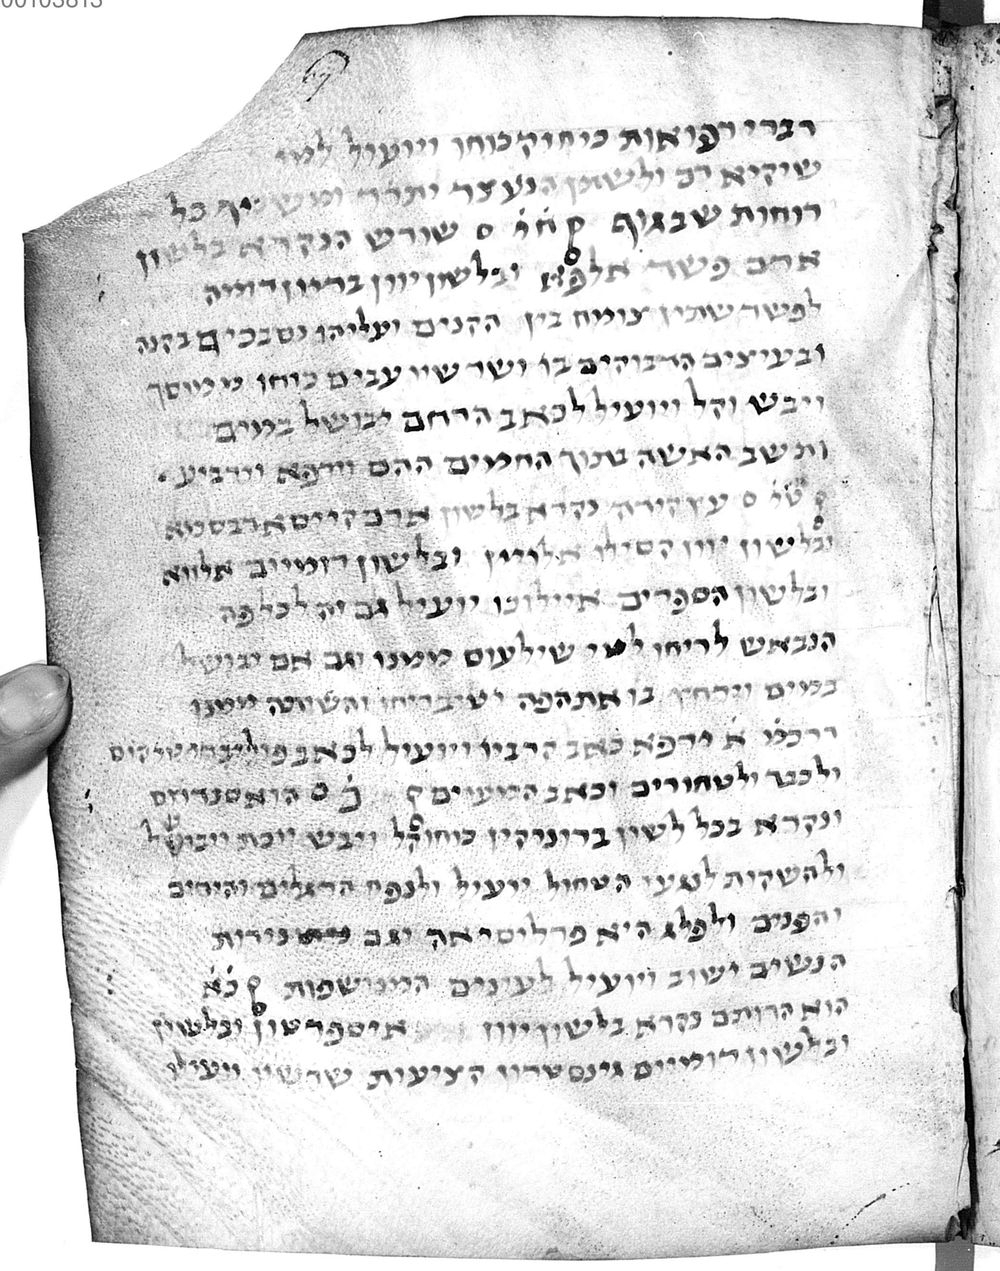 00103813
דברי רפואות כיחזק כוחו ויועיל למי
שיקיא דם ולשתן הנעצר יתרה ומשכך כל
רוחות שבגוף ק״יח ס שורש הנקרא בלשון
ארם פשר אלפא ובלשון יוון בריוון דומה
לפשר שתין צומח בין הקנים ועליהן נסבכים בקנה
ובעיצים הגבוהים בו ושרשיו עבים כוחו ממוסך
ויבש וקל ויועיל לכאב הרחם יבושל במים
ותשב האשה בתוך החמים ההם וירפא וירביע
ק״יט ס עץ קידה נקרא בלשון ארם קייסא דבסמא
ובלשון יוון קסילו אלואין ובלשון רומיים אלווא
ובלשון הספרים איילוכו יועיל גם זה לכל פה
הנבאש לריחו למי שילעוס ממנו וגם אם יבושל
במים וירחץ בו את הפה ייטיב ריחו והשותה ממנו
דרכמ׳ א׳ ירפא כאב הריאה ויועיל לכאב
ולכבד ולטחורים וכאב המעיים ק״כ ס הוא סנדרוס
ונקרא בכל לשון ברוניקין כוחו קל ויבש יוכת ויבושל
ולהשקות לנגעי הטחול יועיל ולנפח הרגלים והידים
והפנים ולפלג היא פרליסיאה וגם נידות
הנשים ישוב ויועיל לעינים המטושפות ק״כא
הוא הרותם נקרא בלשון יוון איספרטון ובלשון
ובלשון רומיים גינסטרון הציעות שרשיו ועיליו